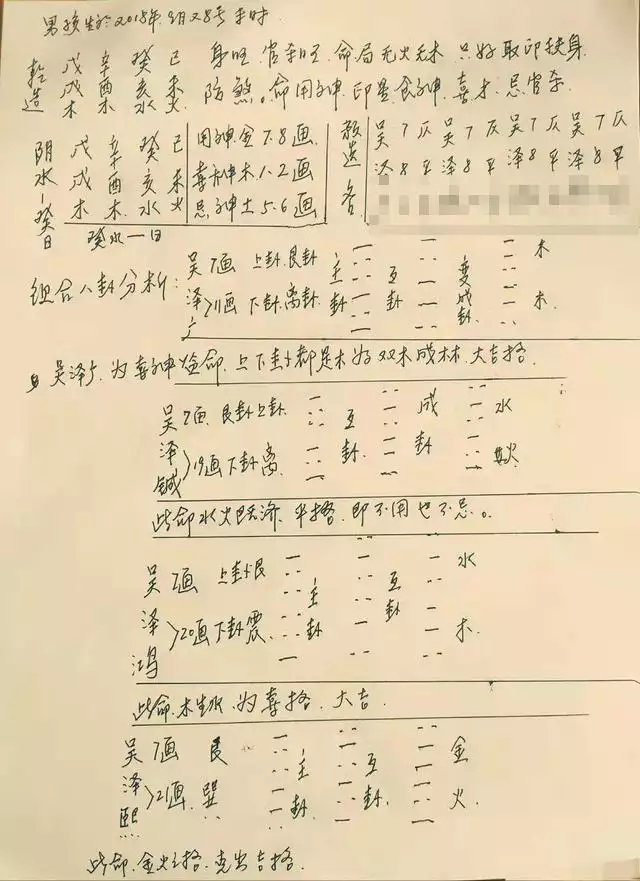 男孩生于2018年9月28号未时
乾造 戊戌木 辛酉木 癸亥水 己未火
身旺 官杀旺 命局无火无木 只好取印扶身
防煞。命用神 印星食神 喜才 忌官杀
阴水-癸日
戊戌木 辛酉木 癸亥水 己未火
癸水一日
用神金 7.8画
喜神木 1.2画
忌神土 5.6画
吴7仄 吴7仄 吴7仄 吴7仄
泽8平 泽8平 泽8平 泽8平
组合八卦分析:
吴7画 上卦艮卦 主卦 互卦 变成卦 木
泽 >11画 下卦离卦 木
吴泽 为喜神 命 上下卦都是木好双木成林 大吉格
吴7画 艮卦上卦 互卦 成卦 水
泽 >19画 下卦离 火
此命水火既济 平格 即不用也不忌。
吴7画 上卦艮 主卦 互卦 水
泽鸿 >20画 下卦震 木
此命 木生水 为喜格 大吉
吴7画 艮 主卦 互卦 金
泽熙 >21画 巽 火
此命 金火之格 克出吉格